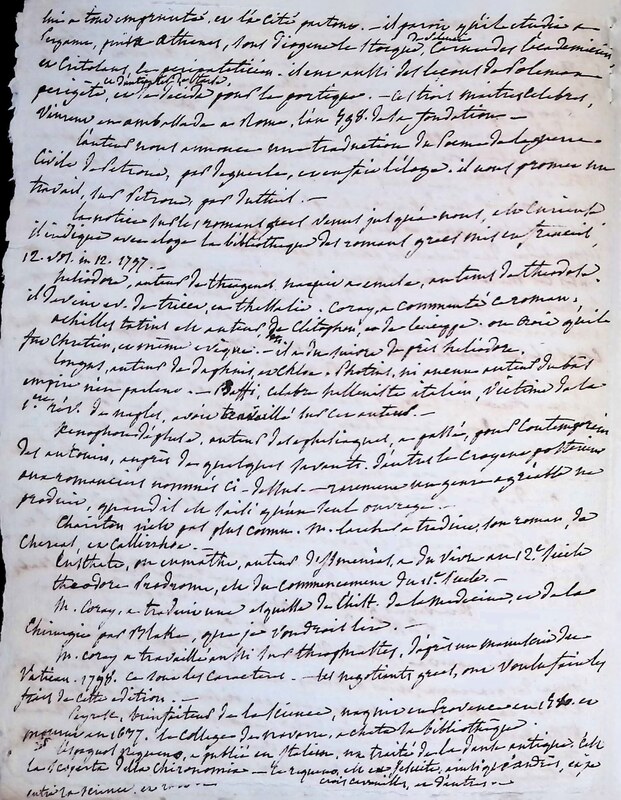 lui a tout emprunté, et l'a cité partout. — il paroît qu'il étudia à
Pergame, puis à Athènes, sous Diogene le stoique, Carneades l'académicien
et Critolaus le peripatéticien. il eut aussi des lecons de Polemon
periegete, et se décida pour le portique. — ces trois maitres celebres,
vinrent en ambassade à Rome, l'an 598. de la fondation —
l'auteur nous annonce une traduction du Poeme de la guerre
Civile de Petrone, par deguerle, et en fait l'éloge. il nous promet un
travail, sur Petrone, par
la notice sur les romans grecs venus jusqu'à nous, est curieuse
il indique avec éloge la bibliotheque des romans grecs mis en françois,
12. vol. in 12. 1797. —
heliodore, auteur de theagenes, naquit à emese, au tems de theodose.
il devint ev. de tricca, en thessalie. Coray, a commenté ce roman,
achilles tatius est auteur de Clitophon, et de leucippe. on croit qu'il
fut chretien, et même evêque. — il a du suivre de près heliodore.
Longus, auteur de daphnis, et Chloe. Photius, ni aucun auteur du bas
empire n'en parlent. — Baffi, celebre helleniste italien, victime de la
1.ere rév. de naples, avoit travaillé sur cet auteur. —
Xenophon d'ephese, auteur des ephesiaques, a passé, pour Contemporain
des antonins, auprès de quelques savants. d'autres le croyent postérieur
aux romanciers nommés ci-dessus. — rarement un genre agréable ne
produit, quand il est saisi qu'un seul ouvrage. —
Chariton n'est pas plus connu. M. larcher a traduit, son roman, de
Chereas, et Callirrhoe. —
Eusthate, ou eumathe, auteur d'Ismenias, a du vivre au 12.e Siecle
theodore Prodrome, est du commencement du 12.e Siecle. —
M. Coray, a traduit une esquisse de l'hist. de la medecine, et de la
Chirurgie par Black, que je voudrois lire. —
M. Coray a travaillé aussi sur theophraste, d'après un manuscrit du
Vatican. 1798. ce sont les caracteres. — les negotiants grecs, ont voulu faire les
frais de cette edition. —
Peyresc, bienfaiteur de la science, naquit en Provence en 1580. et
mourut en 1637. le college de navarre, acheta la bibliothèque.
l'espagnol requeno, a publié en italien, un traité de la danse antique. Est
la scoperta della chironomia — le requeno, est ex-jesuite,